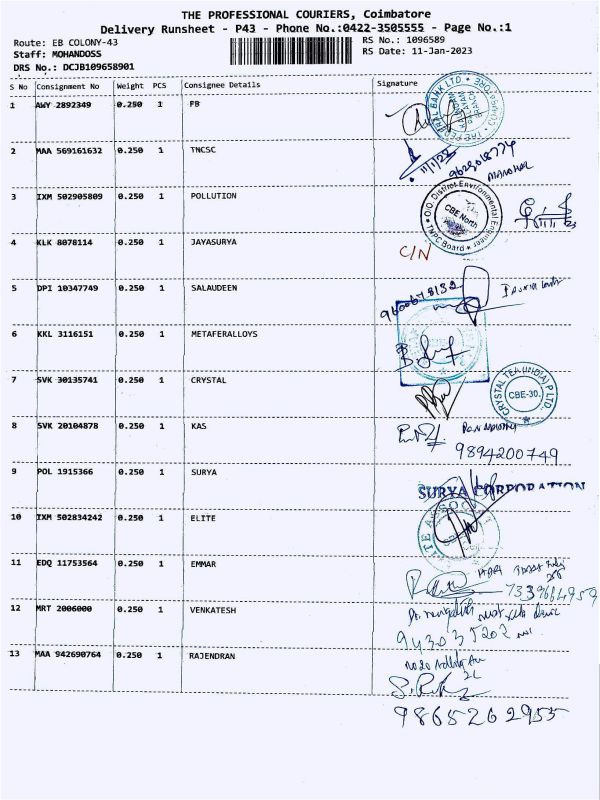 THE PROFESSIONAL COURIERS, Coimbatore
Delivery Runsheet - P43 - Phone No.:0422-3505555 - Page No.:1
Route: EB COLONY-43
RS No.: 1096589
Staff: MOHANDOSS
RS Date: 11-Jan-2023
DRS No.: DCJB109658901
S No Consignment No Weight PCS Consignee Details Signature
1 AWY 2892349 0.250 1 FB
2 MAA 569161632 0.250 1 TNCSC
11/1/23
9629018774
MANOHAR
3 IXM 502905809 0.250 1 POLLUTION
O/O. District Environmental Engineer
CBE North
TNPC Board
4 KLK 8078114 0.250 1 JAYASURYA
C/N
5 DPI 10347749 0.250 1 SALAUDEEN
9600678132
6 KKL 3116151 0.250 1 METAFERALLOYS
7 SVK 30135741 0.250 1 CRYSTAL
CRYSTAL TEA (INDIA) P LTD.
CBE-30.
8 SVK 20104878 0.250 1 KAS
9894200749
9 POL 1915366 0.250 1 SURYA
SURYA CORPORATION
10 IXM 502834242 0.250 1 ELITE
11 EDQ 11753564 0.250 1 EMMAR
7339664959
12 MRT 2006000 0.250 1 VENKATESH
943035202
13 MAA 942690764 0.250 1 RAJENDRAN
9865262955